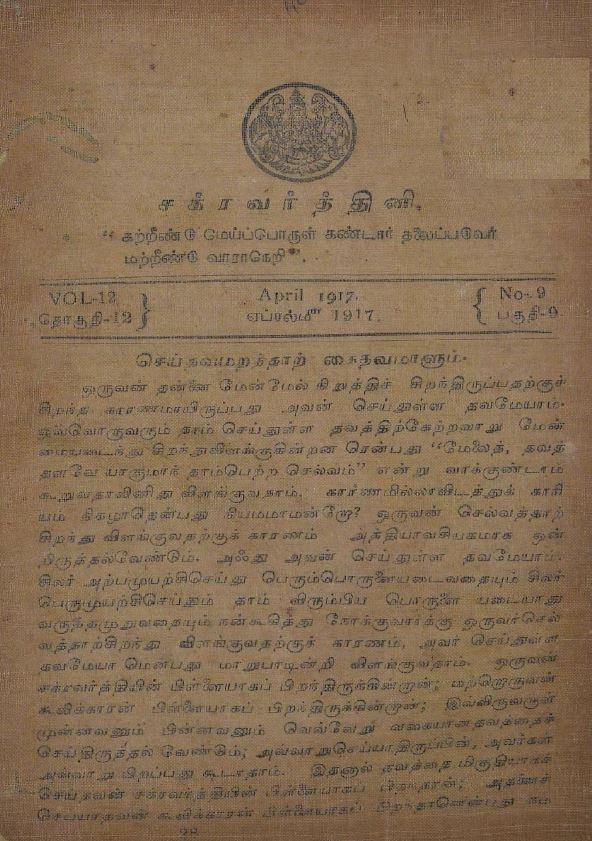 சக்ரவர்த்தினி.
“கற்றீண்டு மெய்ப்பொருள் கண்டார் தலைப்படுவேர்
மற்றீண்டு வாராநெறி”.
VOL-12
தொகுதி-12
April 1917.
ஏப்ரல்மீ 1917.
No-9
பகுதி-9
செய்தவமறந்தாற் கைதவமாளும்.
ஒருவன் தன்னை மேன்மேல் நிறுத்திச் சிறந்திருப்பதற்குச்
சிறந்த காரணமாயிருப்பது அவன் செய்துள்ள தவமேயாம்.
ஒவ்வொருவரும் தாம் செய்துள்ள தவத்திற்கேற்றவாறு மேன்
மையடைந்து சிறந்துவிளங்குகின்றன ரென்பது “மேலைத், தவத்
தளவே யாகுமாந் தாம்பெற்ற செல்வம்” என்று வாக்குண்டாம்
கூறுவதாலினிது விளங்குவதாம். காரணமில்லாவிடத்துக் காரி
யம் நிகழாதென்பது நியமமாமன்றோ? ஒருவன் செல்வத்தாற்
சிறந்து விளங்குவதற்குக் காரணம் அத்தியாவசியகமாக ஒன்
றிருத்தல்வேண்டும். அஃது அவன் செய்துள்ள தவமேயாம்.
சிலர் அற்பமுயற்சிசெய்து பெரும்பொருளையடைவதையும் சிலர்
பெருமுயற்சிசெய்தும் தாம் விரும்பிய பொருளை யடையாது
வருந்தமுறுவதையும் நன்கூகித்து நோக்குவார்க்கு ஒருவர்செல்
வத்தாற்சிறந்து விளங்குவதற்குக் காரணம், அவர் செய்துள்ள
தவமேயா மென்பது மாறுபாடின்றி விளங்குவதாம். ஒருவன்
சக்ரவர்த்தியின் பிள்ளையாகப் பிறந்திருக்கின்றான்; மற்றொருவன்
கூலிக்காரன் பிள்ளையாகப் பிறந்திருக்கின்றான்; இவ்விருவருள்
முன்னவனும் பின்னவனும் வெவ்வேறு வகையானதவத்தைச்
செய்திருத்தல் வேண்டும்; அவ்வாறுசெய்யாதிருப்பின், அவர்கள்
அவ்வாறு பிறப்பது கூடாதாம். இதனால் தவத்தை மிகுதியாகச்
செய்தவன் சக்ரவர்த்தியின் பிள்ளையாகப் பிறந்தான்; அதனைச்
செய்யாதவன் கூலிக்காரன் பிள்ளையாகப் பிறந்தானென்பது நம்